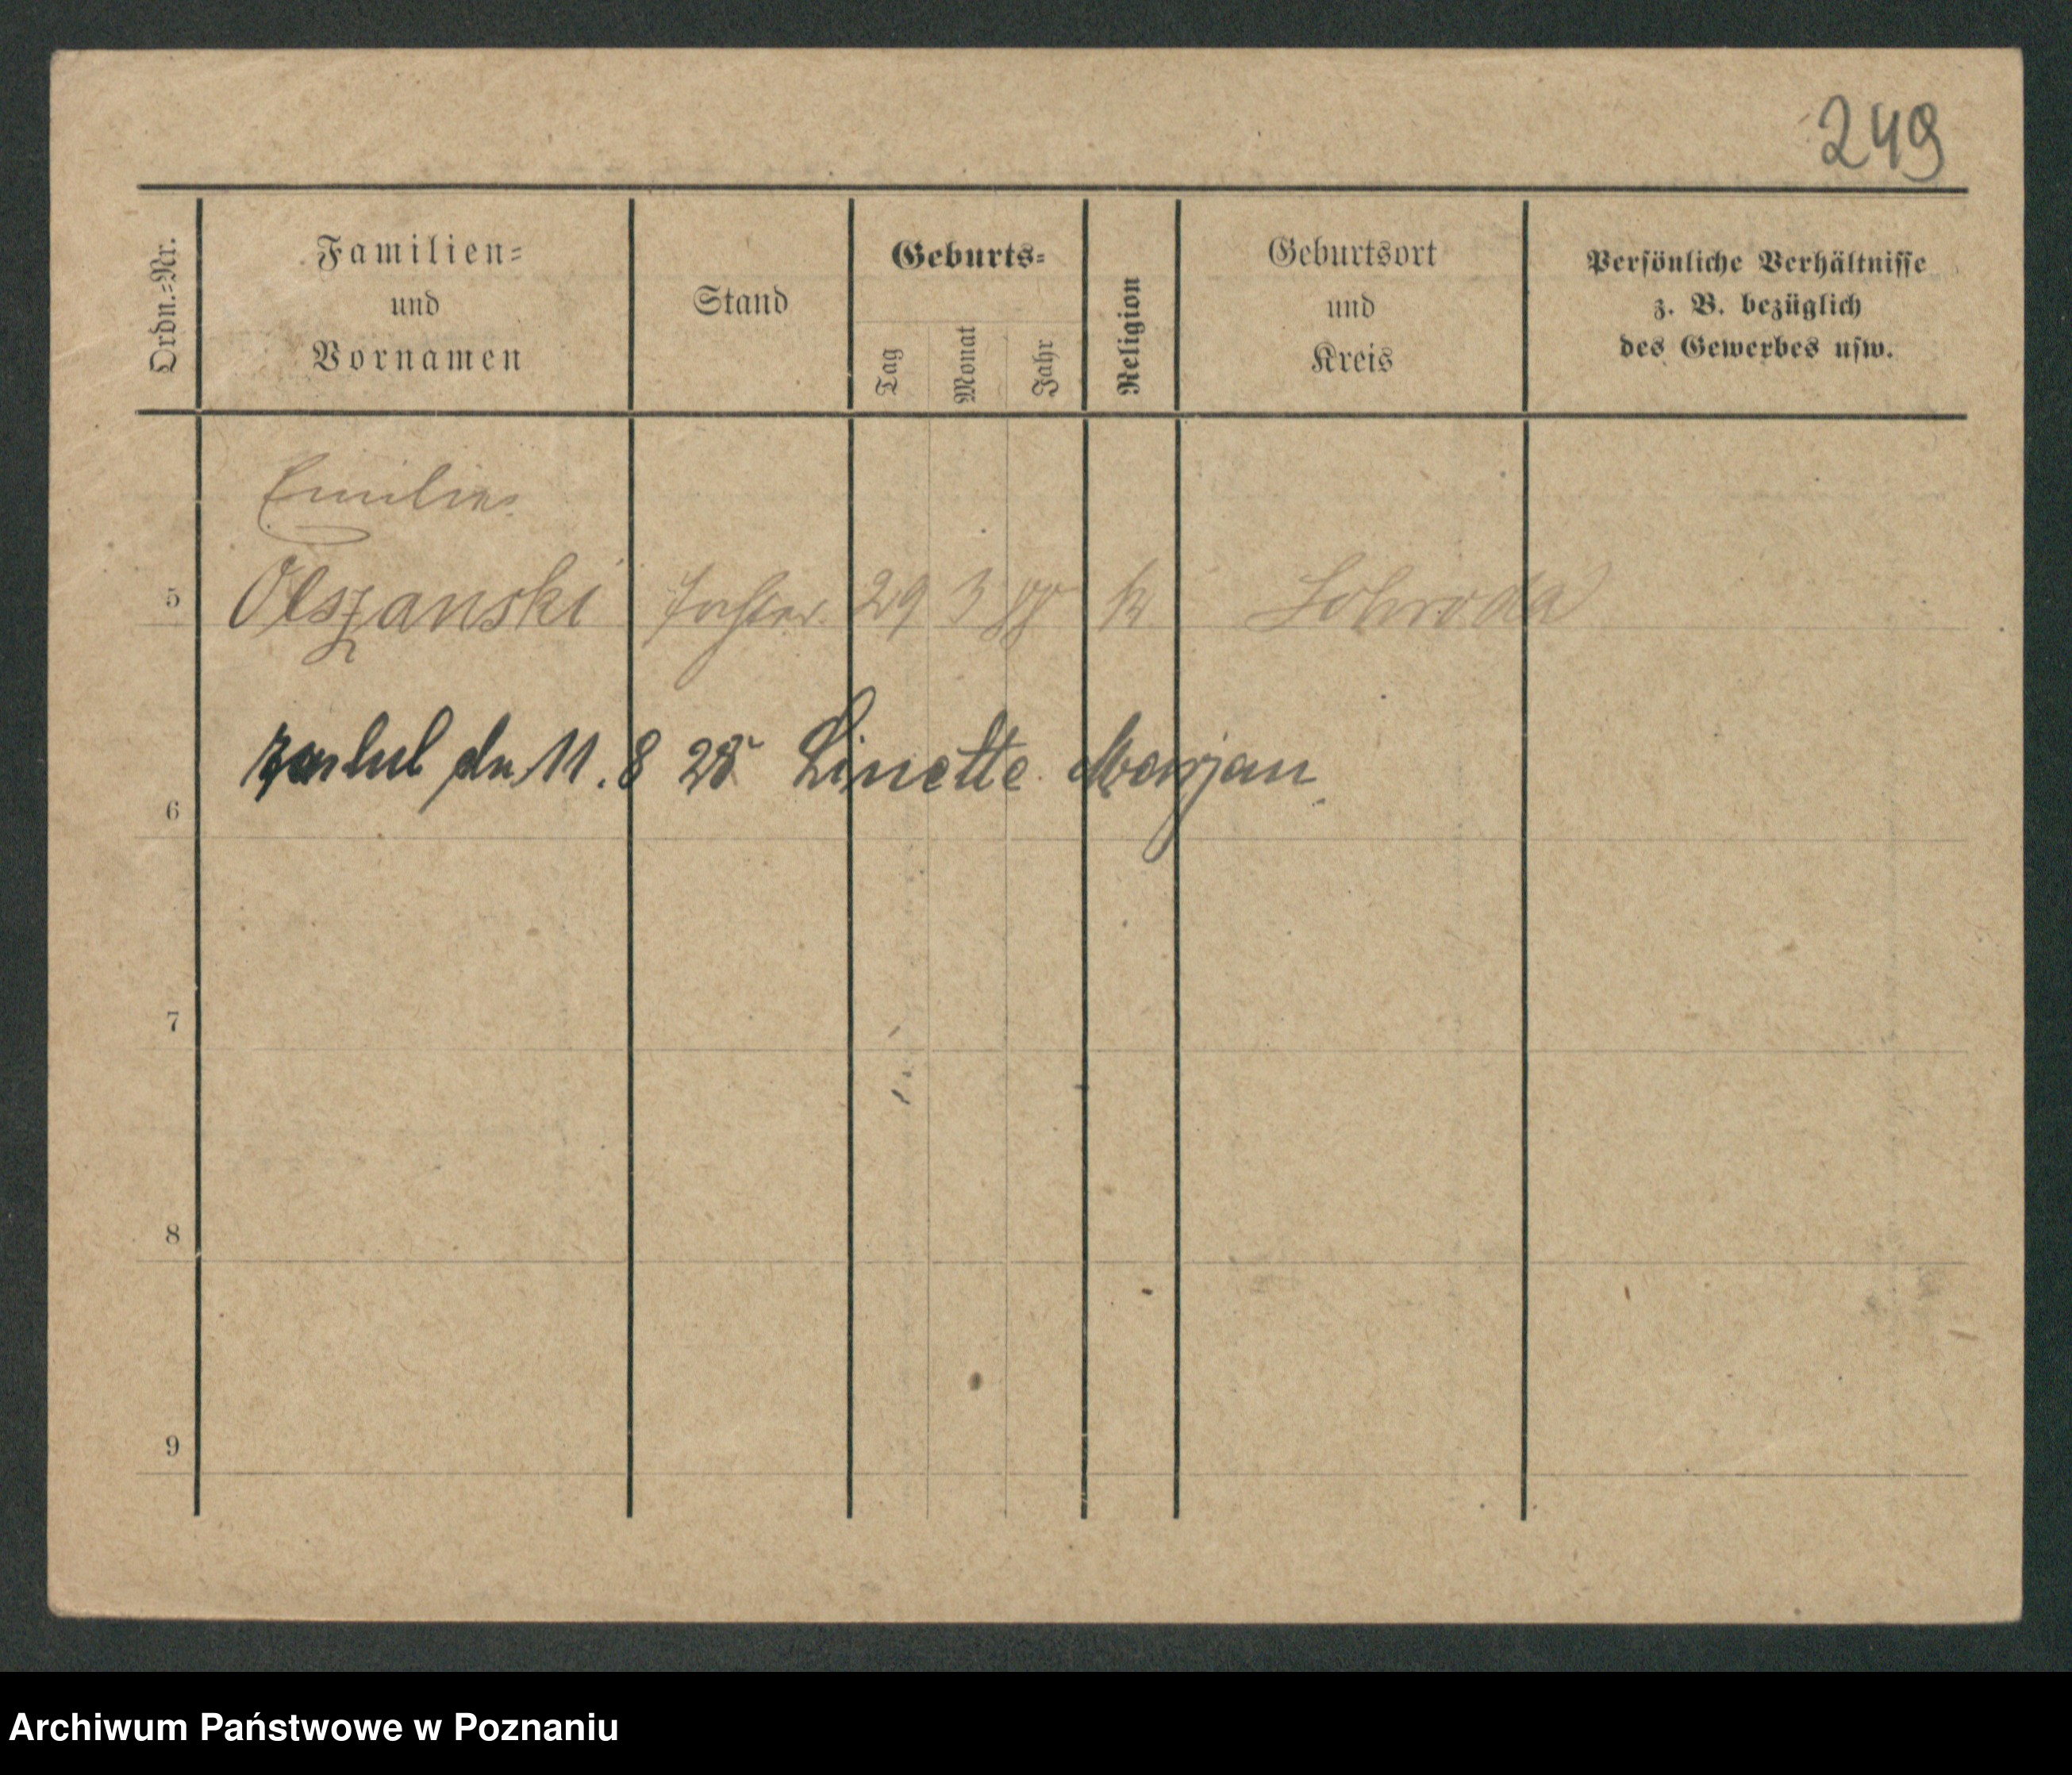 249
Ordn.-Nr.
Familien-
und
Vornamen
Stand
Geburts-
Tag
Monat
Jahr
Religion
Geburtsort
und
Kreis
Persönliche Verhältnisse
z. B. bezüglich
des Gewerbes usw.
Emilie
5 Olszanski Tochter 29 3 88 k. Schroda
dn 11. 8 25 Linette Marjan
6
7
8
9
Archiwum Państwowe w Poznaniu